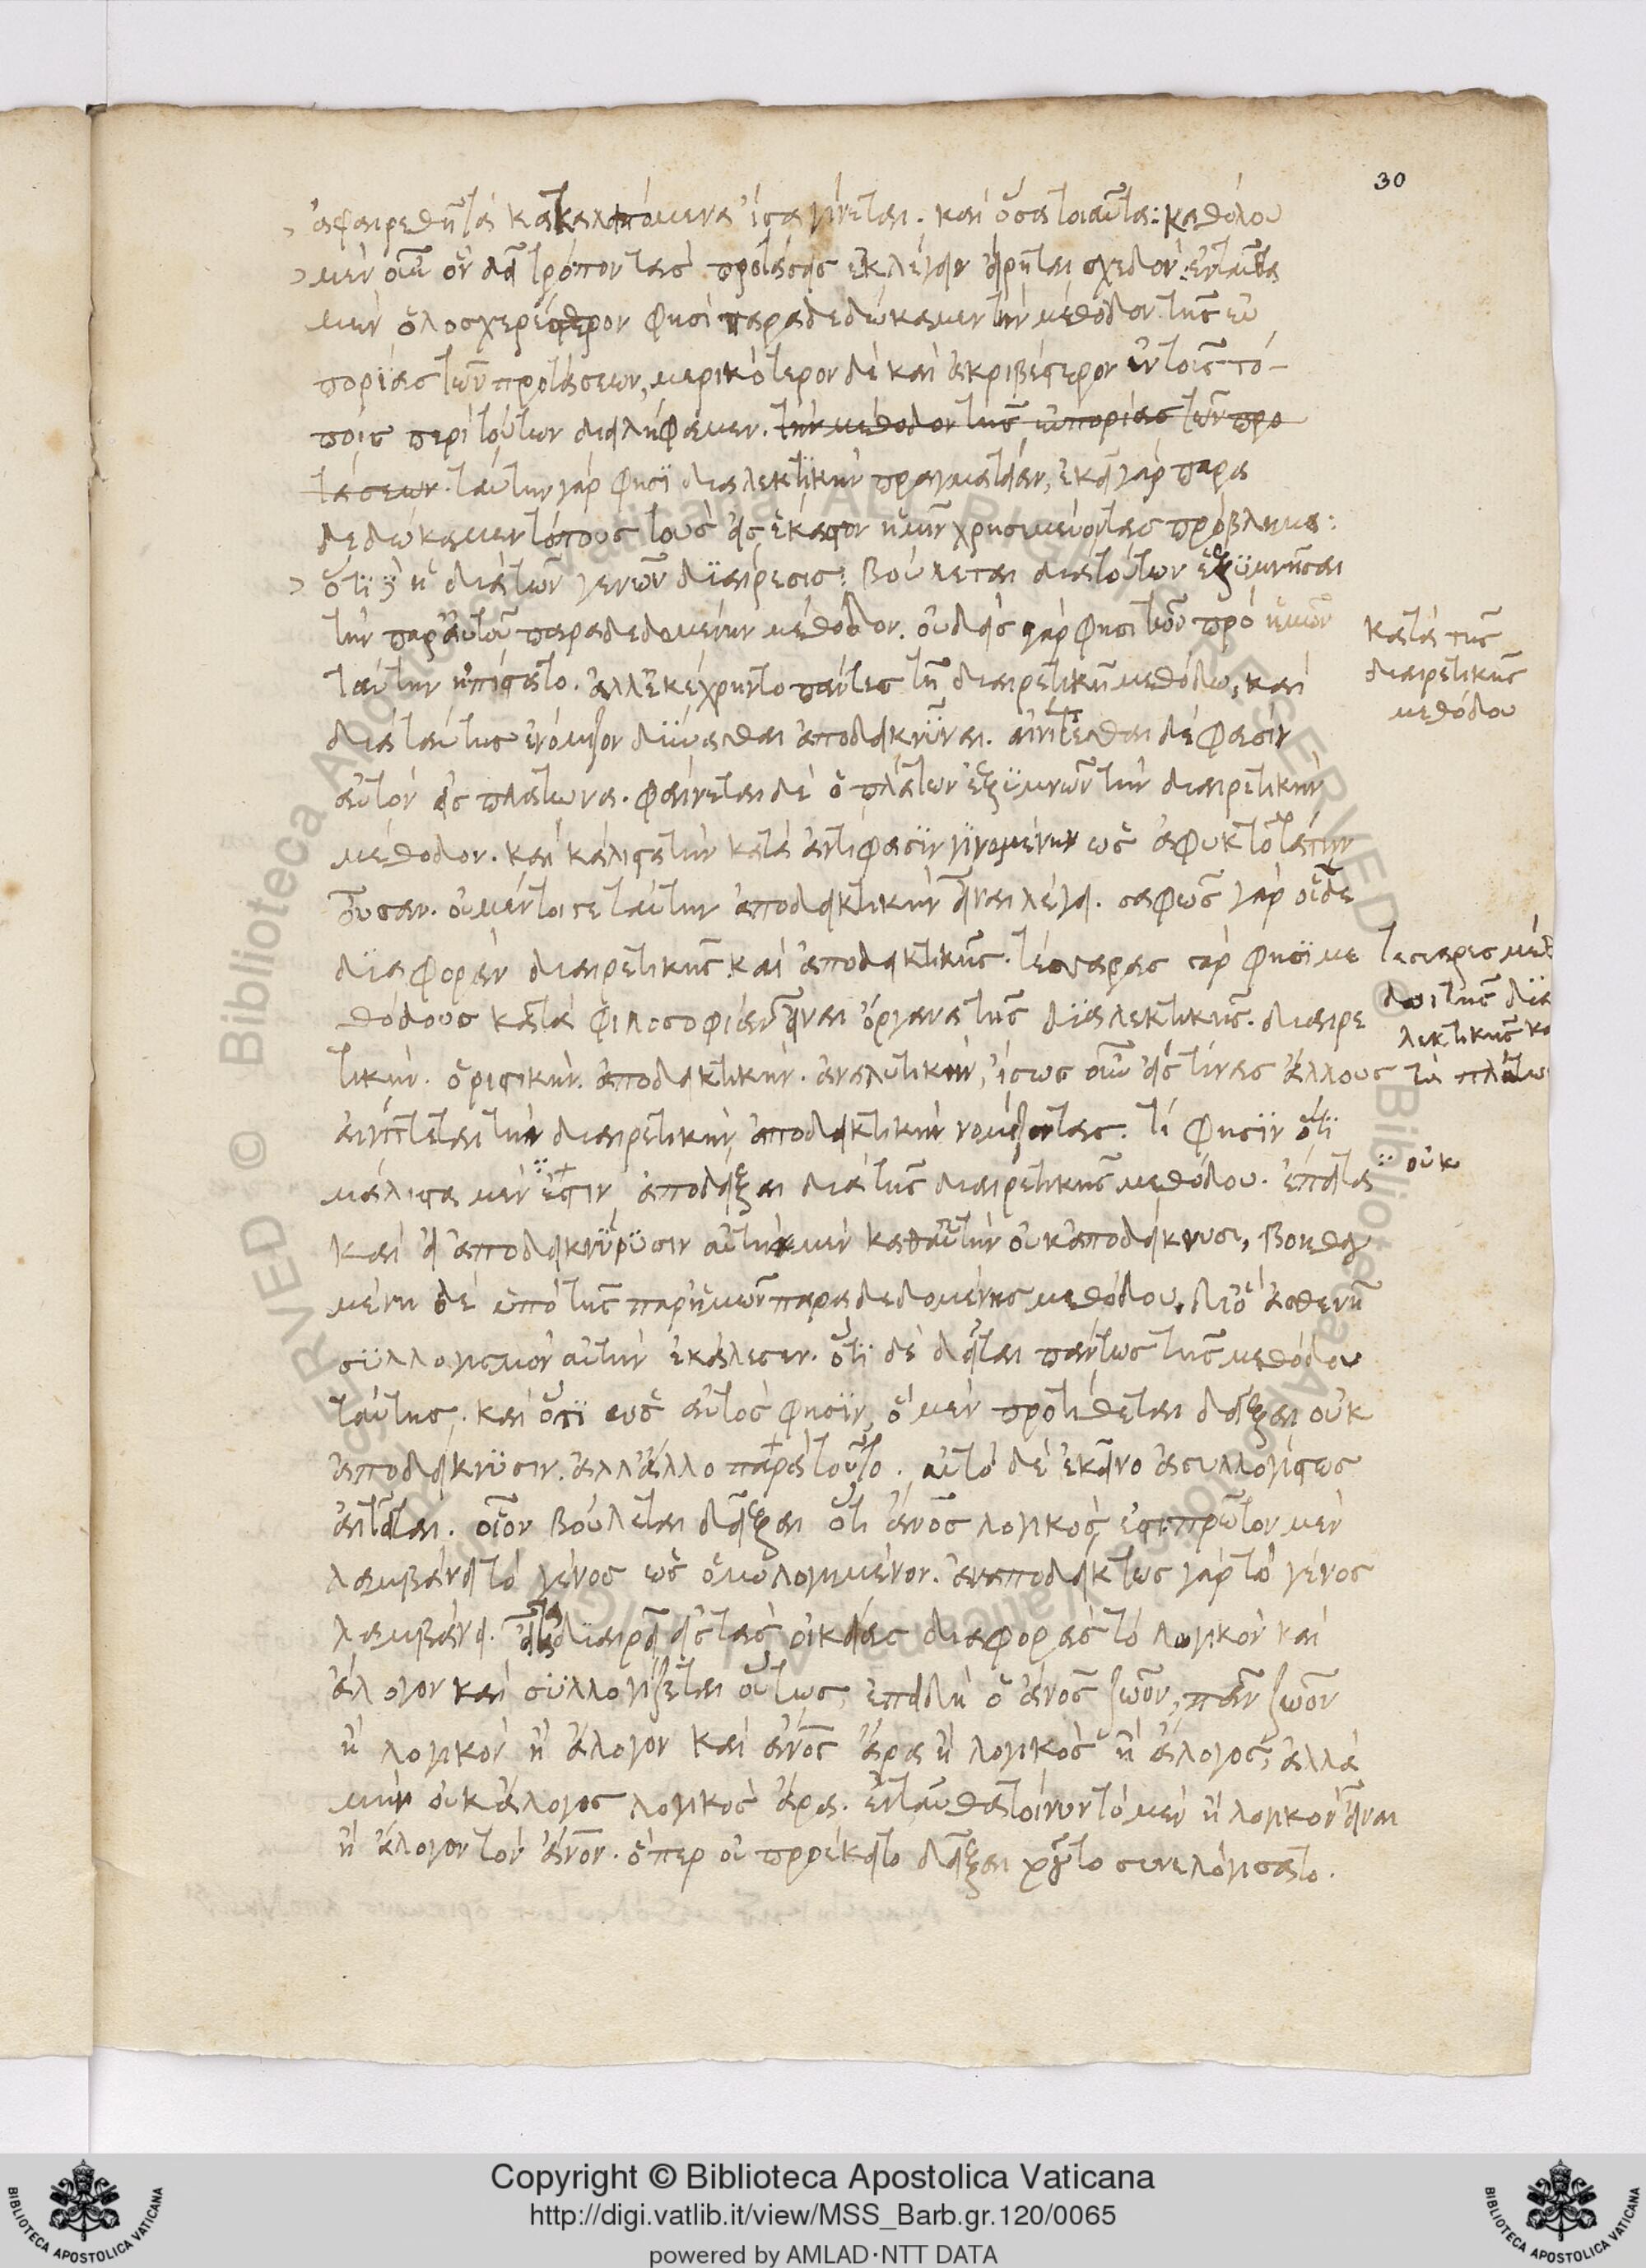 30
ἀφαιρεθῆ τὰ καταλειπόμενα ἴσα γίνεται. καὶ ὅσα τοιαῦτα: καθόλου
μὲν οὖν ὃν δεῖ τρόπον τὰς προτάσεις ἐκλέγειν εἴρηται σχεδόν: ἐνταῦθα
μὲν ὁλοσχερέστερον φησὶ παραδεδώκαμεν τὴν μέθοδον τῆς εὐ
πορίας τῶν προτάσεων, μερικότερον δὲ καὶ ἀκριβέστερον ἐν τοῖς τό-
ποις περὶ τούτων διειλήφαμεν. τὴν μέθοδον τῆς εὐπορίας τῶν προ
τάσεων. ταύτην γάρ φησὶ διαλεκτικὴν πραγματείαν, ἐκεῖ γὰρ παρα
δεδώκαμεν τόπους τοὺς εἰς ἕκαστον ἡμῖν χρησιμεύοντας πρόβλημα:
ὅτι δ' ἡ διὰ τῶν γενῶν διαίρεσις: βούλεται διὰ τούτων ἐξυμνῆσαι
τὴν παρ' αὐτοῦ παραδεδομένην μέθοδον. οὐδεὶς γάρ φησι τῶν πρὸ ἡμῶν
ταύτην ἠπίστατο. ἀλλ' ἐκέχρηντο πάντες τῇ διαιρετικῇ μεθόδῳ, καὶ
διὰ ταύτης ἐνόμιζον δύνασθαι ἀποδεικνύναι. αἰνίττεσθαι δέ φασὶν
αὐτὸν εἰς πλάτωνα. φαίνεται δὲ ὁ πλάτων ἐξυμνῶν τὴν διαιρετικὴν
μέθοδον. καὶ μάλιστα τὴν κατὰ ἀντίφασιν γινομένην ὡς ἀφυκτοτάτην
οὖσαν. οὐ μέντοι γε ταύτην ἀποδεικτικὴν εἶναι λέγει. σαφῶς γὰρ οἶδε
διαφορὰν διαιρετικῆς καὶ ἀποδεικτικῆς. τέσσαρας γάρ φησὶ με
θόδους κατὰ φιλοσοφίαν εἶναι ὄργανα τῆς διαλεκτικῆς. διαιρε
τικήν. ὁριστικήν. ἀποδεικτικήν. ἀναλυτικήν, ἴσως οὖν εἰς τινὰς ἄλλους
αἰνίττεται τὴν διαιρετικὴν ἀποδεικτικὴν νομίζοντας. τί φησὶν ὅτι
μάλιστα μὲν ἔστιν ἀποδεῖξαι διὰ τῆς διαιρετικῆς μεθόδου. ἔπειτα
καὶ εἰ ἀποδεικνύουσιν αὐτὴ μὲν καθ' αὑτὴν οὐκ ἀποδείκνυσι, βοηθου
μένη δὲ ὑπὸ τῆς παρ' ἡμῶν παραδεδομένης μεθόδου. διὸ ἀσθενῆ
συλλογισμὸν αὐτὴν ἐκάλεσεν. ὅτι δὲ δεῖται πάντως τῆς μεθόδου
ταύτης. καὶ ὅτι ὡς αὐτός φησὶν, ὃ μὲν προτίθεται δεῖξαι οὐκ
ἀποδείκνυσιν. ἀλλ' ἄλλο παρὰ τοῦτο. αὐτὸ δὲ ἐκεῖνο ἀσυλλογίστως
αἰτεῖται. οἷον βούλεται δεῖξαι ὅτι ἄνος λογικός ἐστι πρῶτον μὲν
λαμβάνει τὸ γένος ὡς ὁμολογημένον. ἀναποδείκτως γὰρ τὸ γένος
λαμβάνει. εἶτα διαιρεῖ εἰς τὰς οἰκείας διαφορὰς τὸ λογικὸν καὶ
ἄλογον καὶ συλλογίζεται οὕτως, ἐπειδὴ ὁ ἄνος ζῶον, πᾶν ζῶον
ἢ λογικὸν ἢ ἄλογον καὶ ἄνος ἄρα ἢ λογικὸς ἢ ἄλογος, ἀλλὰ
μὴν οὐκ ἄλογος λογικὸς ἄρα. ἐνταῦθα τοίνυν τὸ μὲν ἢ λογικὸν εἶναι
ἢ ἄλογον τὸν ἄνον. ὅπερ οὐ προέκειτο δεῖξαι τοῦτο συνελογίσατο.
κατὰ τῆς
διαιρετικῆς
μεθόδου
τεσσαρες μέθ
δοι τῆς δια
λεκτικῆς κα
τὰ πλάτω
οὐκ
Copyright © Biblioteca Apostolica Vaticana
http://digi.vatlib.it/view/MSS_Barb.gr.120/0065
powered by AMLAD·NTT DATA
BIBLIOTECA APOSTOLICA VATICANA
BIBLIOTECA APOSTOLICA VATICANA